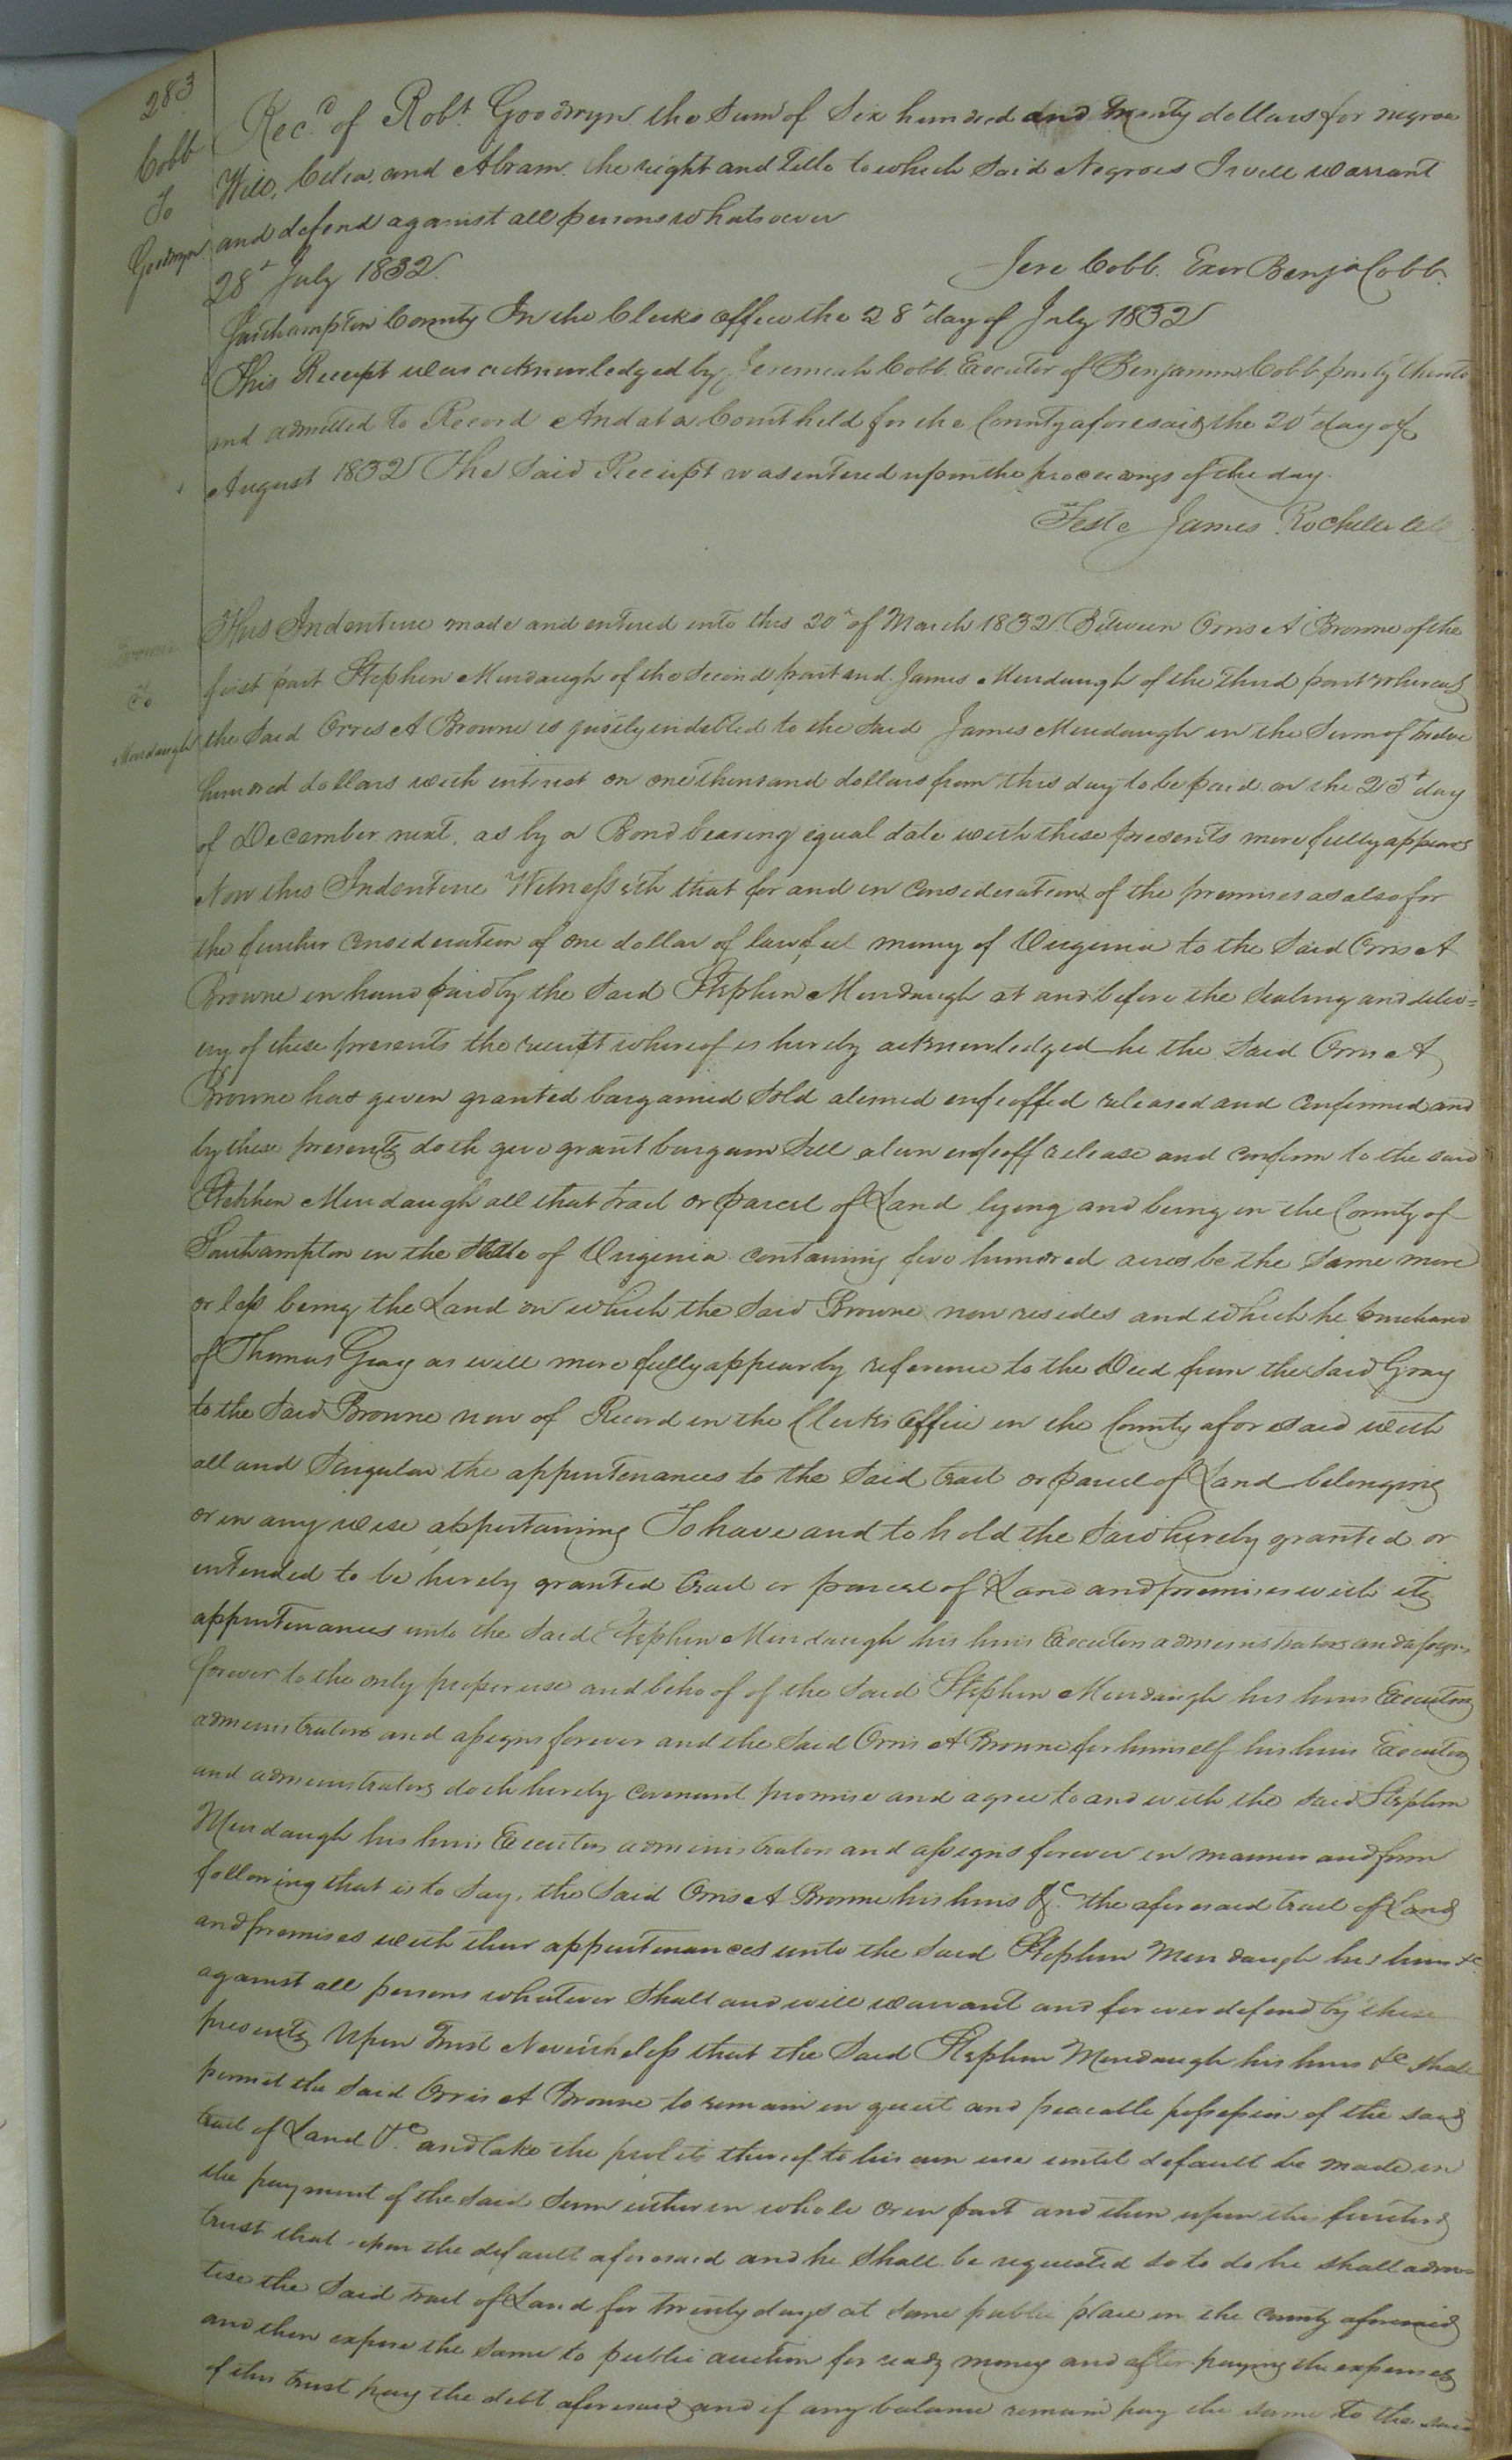 283
Cobb
To
Goodwyn
Rec.d of Robt. Goodwyn the Sum of Six hundred and twenty dollars for negroes
Will, Celia, and Abram the right and Title to which Said Negroes I will warrant
and defend against all persons whatsoever
28t July 1832 Jere Cobb. Exor Benja Cobb.
Southampton County In the Clerks office the 28t day of July 1832
This Receipt was acknowledged by Jeremiah Cobb Executor of Benjamin Cobb party thereto
and admitted to Record And at a Court held for the County aforesaid the 20t day of
August 1832 The Said Receipt was entered upon the proceedings of the day.
Teste James Rochelle Clk
Browne
To
Murdaugh
This Indenture made and entered into this 20t of March 1832 Between Orris A Browne of the
first part Stephen Murdaugh of the Second part and James Murdaugh of the Third part Whereas
the Said Orris A Browne is justly indebted to the Said James Murdaugh in the Sum of twelve
hundred dollars with interest on one thousand dollars from this day to be paid on the 25t day
of December next, as by a Bond bearing equal date with these presents more fully appears
Now this Indenture Witnesseth that for and in Consideration of the premises as also for
the further Consideration of one dollar of lawful money of Virginia to the Said Orris A
Browne in hand paid by the Said Stephen Murdaugh at and before the Sealing and deliv=
ery of these presents the receipt whereof is hereby acknowledged he the Said Orris A
Browne has given granted bargained Sold aliened enfeoffed released and Confirmed and
by these presents doth give grant bargain Sell alien enfeoff release and confirm to the said
Stephen Murdaugh all that tract or parcel of Land lying and being in the County of
Southampton in the State of Virginia containing five hundred acres be the Same more
or less being the Land on which the Said Browne now resides and which he purchased
of Thomas Gray as will more fully appear by reference to the Deed from the Said Gray
to the Said Browne now of Record in the Clerks Office in the County aforesaid with
all and Singular the appurtenances to the Said tract or parcel of Land belonging
or in any wise appertaining To have and to hold the Said hereby granted or
intended to be hereby granted tract or parcel of Land and premises with its
appurtenances unto the Said Stephen Murdaugh his heirs Executors administrators and assigns
forever to the only proper use and behoof of the Said Stephen Murdaugh his heirs Executors
administrators and assigns forever and the Said Orris A Browne for himself his heirs Executors
and administrators doth hereby covenant promise and agree to and with the Said Stephen
Murdaugh his heirs Executors administrators and assigns forever in manner and form
following that is to Say, the Said Orris A Browne his heirs &c. the aforesaid tract of Land
and premises with their appurtenances unto the Said Stephen Murdaugh his heirs &c
against all persons whatever Shall and will warrant and forever defend by these
presents Upon Trust Nevertheless that the Said Stephen Murdaugh his heirs &c shall
permit the Said Orris A Browne to remain in quiet and peacable possession of the said
tract of Land &c. and take the profits thereof to his own use until default be made in
the payment of the Said Sum either in whole or in part and then upon this further
trust that upon the default aforesaid and he Shall be requested so to do he shall adver
tise the Said tract of Land for twenty days at Some public place in the county aforesaid
and then expose the Same to public auction for ready money and after paying the expenses
of this trust pay the debt aforesaid and if any balance remain pay the same to the said